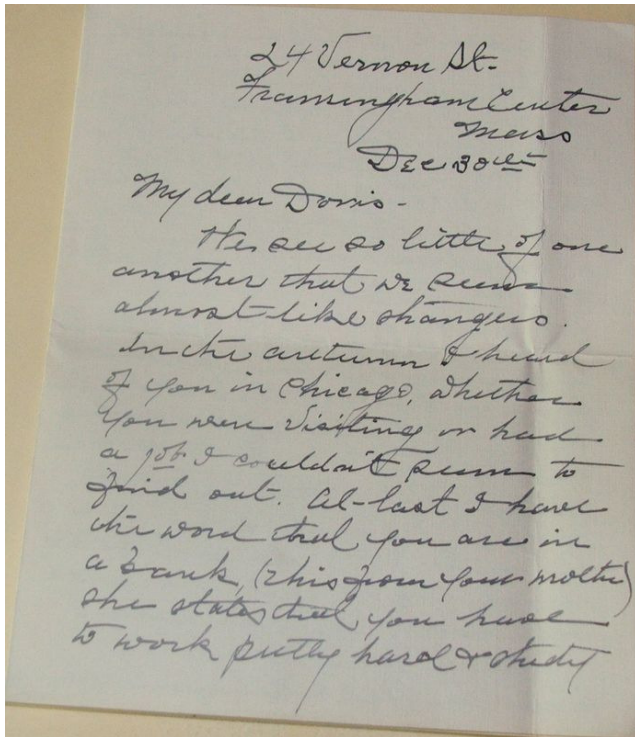 24 Vernon St.
Framingham Center
Mass
Dec 30th
My dear Dorris -
We see so little of one
another that we seem
almost like strangers.
In the autumn I heard
of you in Chicago, whether
you were visiting or had
a job I couldn't seem to
find out. At last I have
the word that you are in
a bank, (this from your mother)
she states that you have
to work pretty hard & study